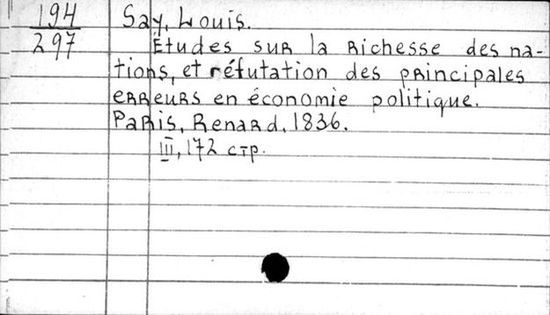 194 Say, Louis.
297 Études sur la richesse des na-
tions, et réfutation des principales
erreurs en économie politique.
Paris, Renard, 1836.
III, 172 стр.